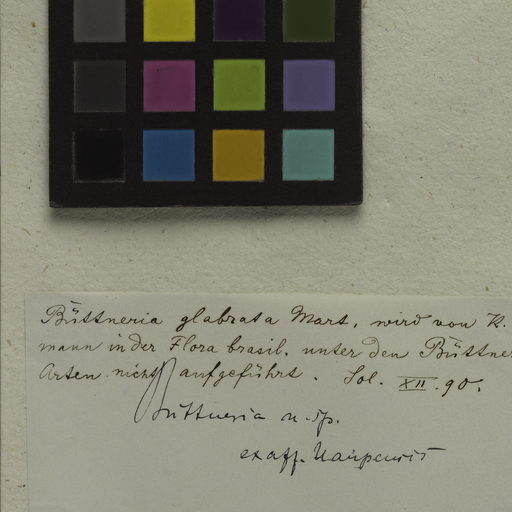 Büttneria glabrata Mart., wird von K.
mann in der Flora brasil. unter den Büttner
Arten nicht aufgeführt. Sol. XII. 90.
Büttneria n. sp.
ex aff.